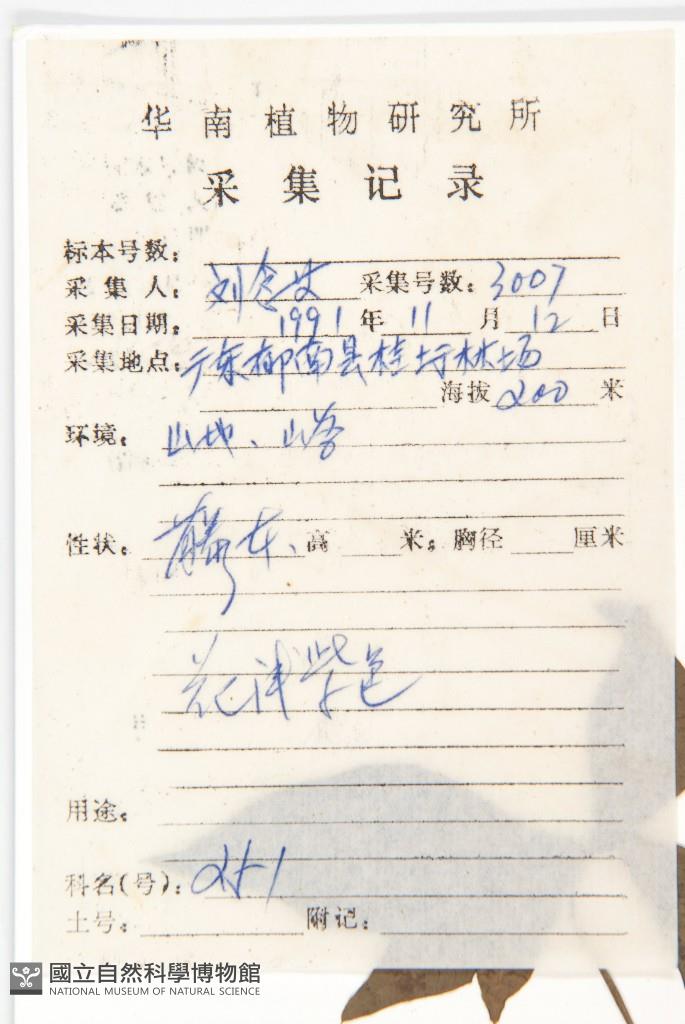 华南植物研究所
采集记录
标本号数：
采集人：刘念 采集号数：3007
采集日期：1991年11月12日
采集地点：广东郁南县桂圩林场
海拔200米
环境：山地、山谷
性状：藤本、高 米；胸径 厘米
花淡紫色
用途：
科名(号)：
土号： 附记：
國立自然科學博物館
NATIONAL MUSEUM OF NATURAL SCIENCE